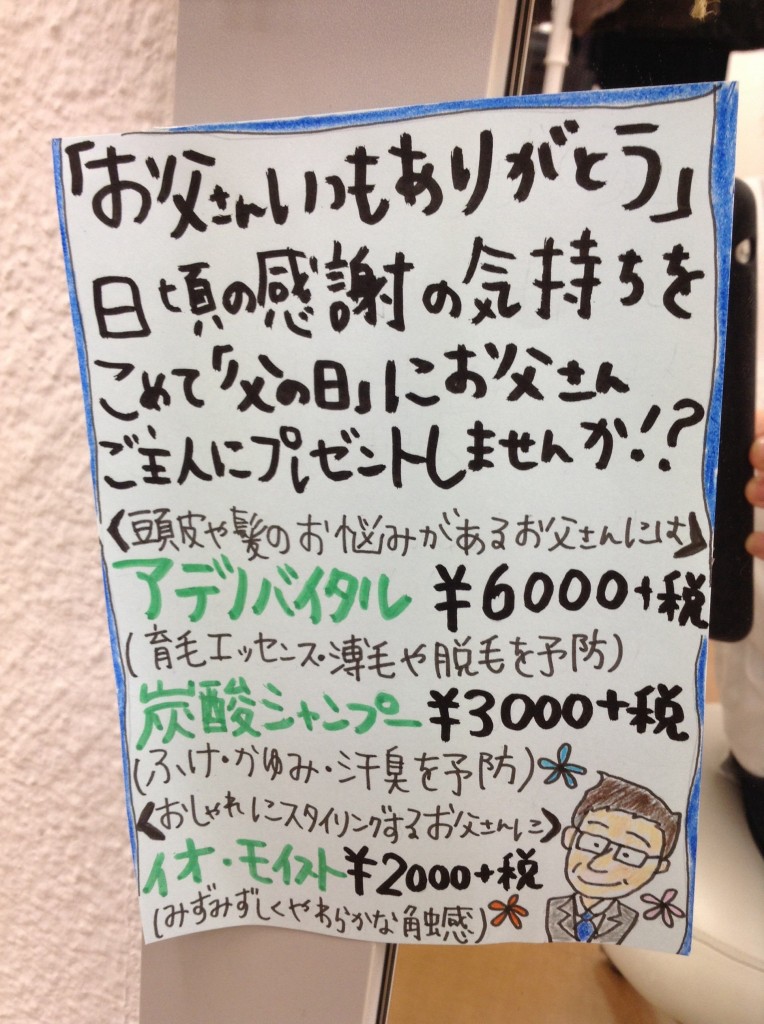 「お父さんいつもありがとう」
日頃の感謝の気持ちを
こめて「父の日」にお父さん
ご主人にプレゼントしませんか!?
〈頭皮や髪のお悩みがあるお父さんには〉
アデノバイタル ¥6000+税
(育毛エッセンス・薄毛や脱毛を予防)
炭酸シャンプー ¥3000+税
(ふけ・かゆみ・汗臭を予防)
〈おしゃれにスタイリングするお父さんに〉
イオ・モイスト ¥2000+税
(みずみずしくやわらかな触感)